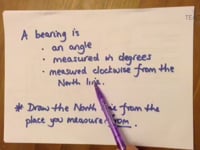 TEA
A bearing is
· an angle
· measured in degrees
· measured clockwise from the
North line.
* Draw the North line from the
place you measure from.